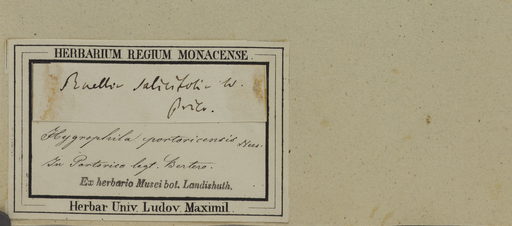 HERBARIUM REGIUM MONACENSE
Ruellia salicifolia W.
Hygrophila portoricensis Nees.
In Portorico legt. Bertero.
Ex herbario Musei bot. Landishuth.
Herbar Univ. Ludov Maximil.